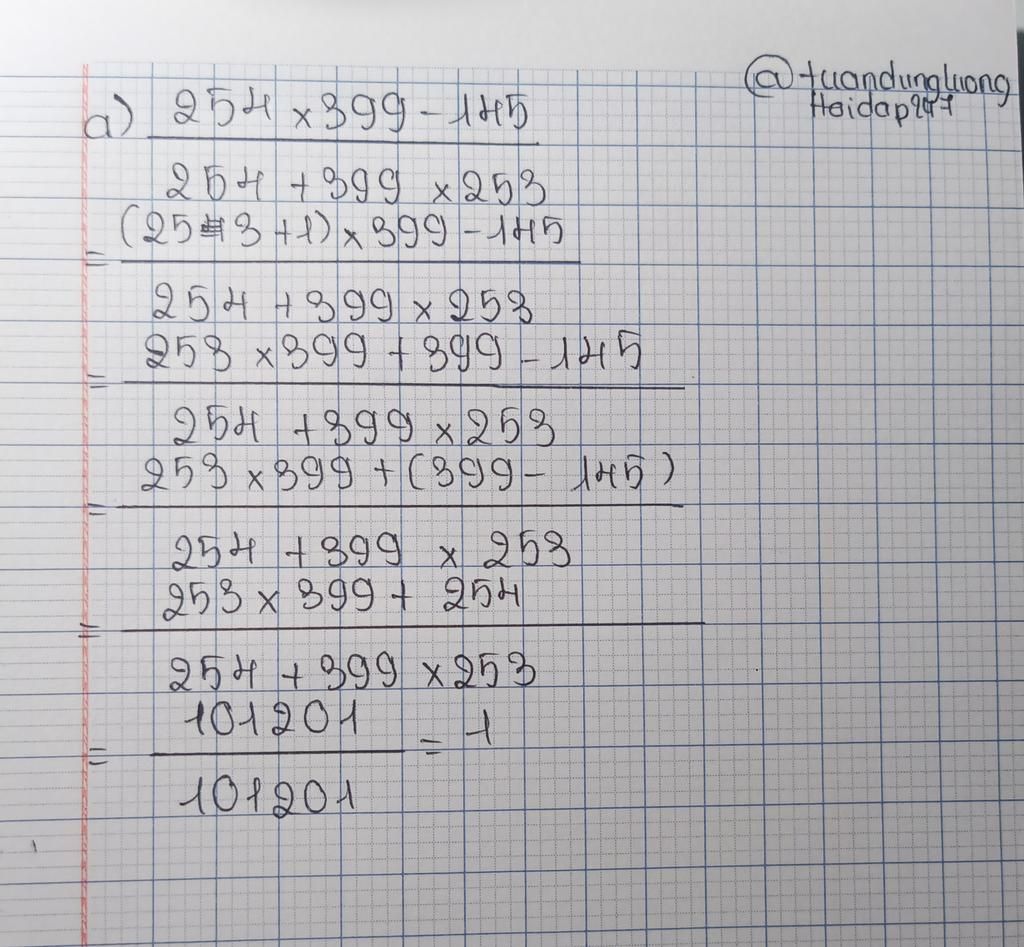 @tuandungluong
Hoidap247
a) 254 × 399 - 145
254 + 399 × 253
= (253 + 1) × 399 - 145
254 + 399 × 253
= 253 × 399 + 399 - 145
254 + 399 × 253
= 253 × 399 + (399 - 145)
254 + 399 × 253
= 253 × 399 + 254
254 + 399 × 253
= 101201 = 1
101201